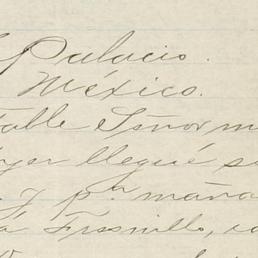 Palacio.
México.
table Señor m
ayer llegué s
y pr. maña
á Fresnillo, co